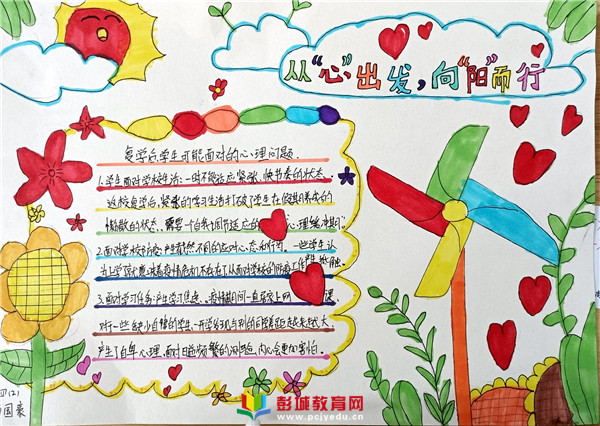 从“心”出发,向“阳”而行
复学后学生可能面对的心理问题.
1.学生面对学校生活:一时不能适应紧张、快节奏的状态.
返校复学后,紧张的学习生活打破了学生在假期养成的
懒散的状态,需要一个自我调节适应的 心理缓冲期
2.面对学校防疫:产生截然不同的应对心态和行为。一些学生认
为
3.面对学习任务:产生学习焦虑、疫情期间一直在家上网 课
对于一些缺少自律的学生,开学后发现与别的同学差距越来越大
产生了自卑心理,面对日益频繁的测验,内心会更加害怕.
四(2)
彭城教育网
www.pcjyedu.cn